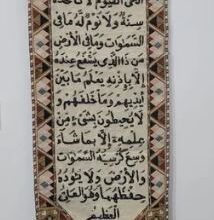 الحي القيوم لا تأخذه
سنة ولا نوم له ما في
السموات وما في الأرض
من ذا الذي يشفع عنده
إلا بإذنه يعلم ما بين
أيديهم وما خلفهم و
لا يحيطون بشيء من
علمه إلا بما شاء
وسع كرسيه السموات
والأرض ولا يؤده
حفظهما وهو العلي
العظيم